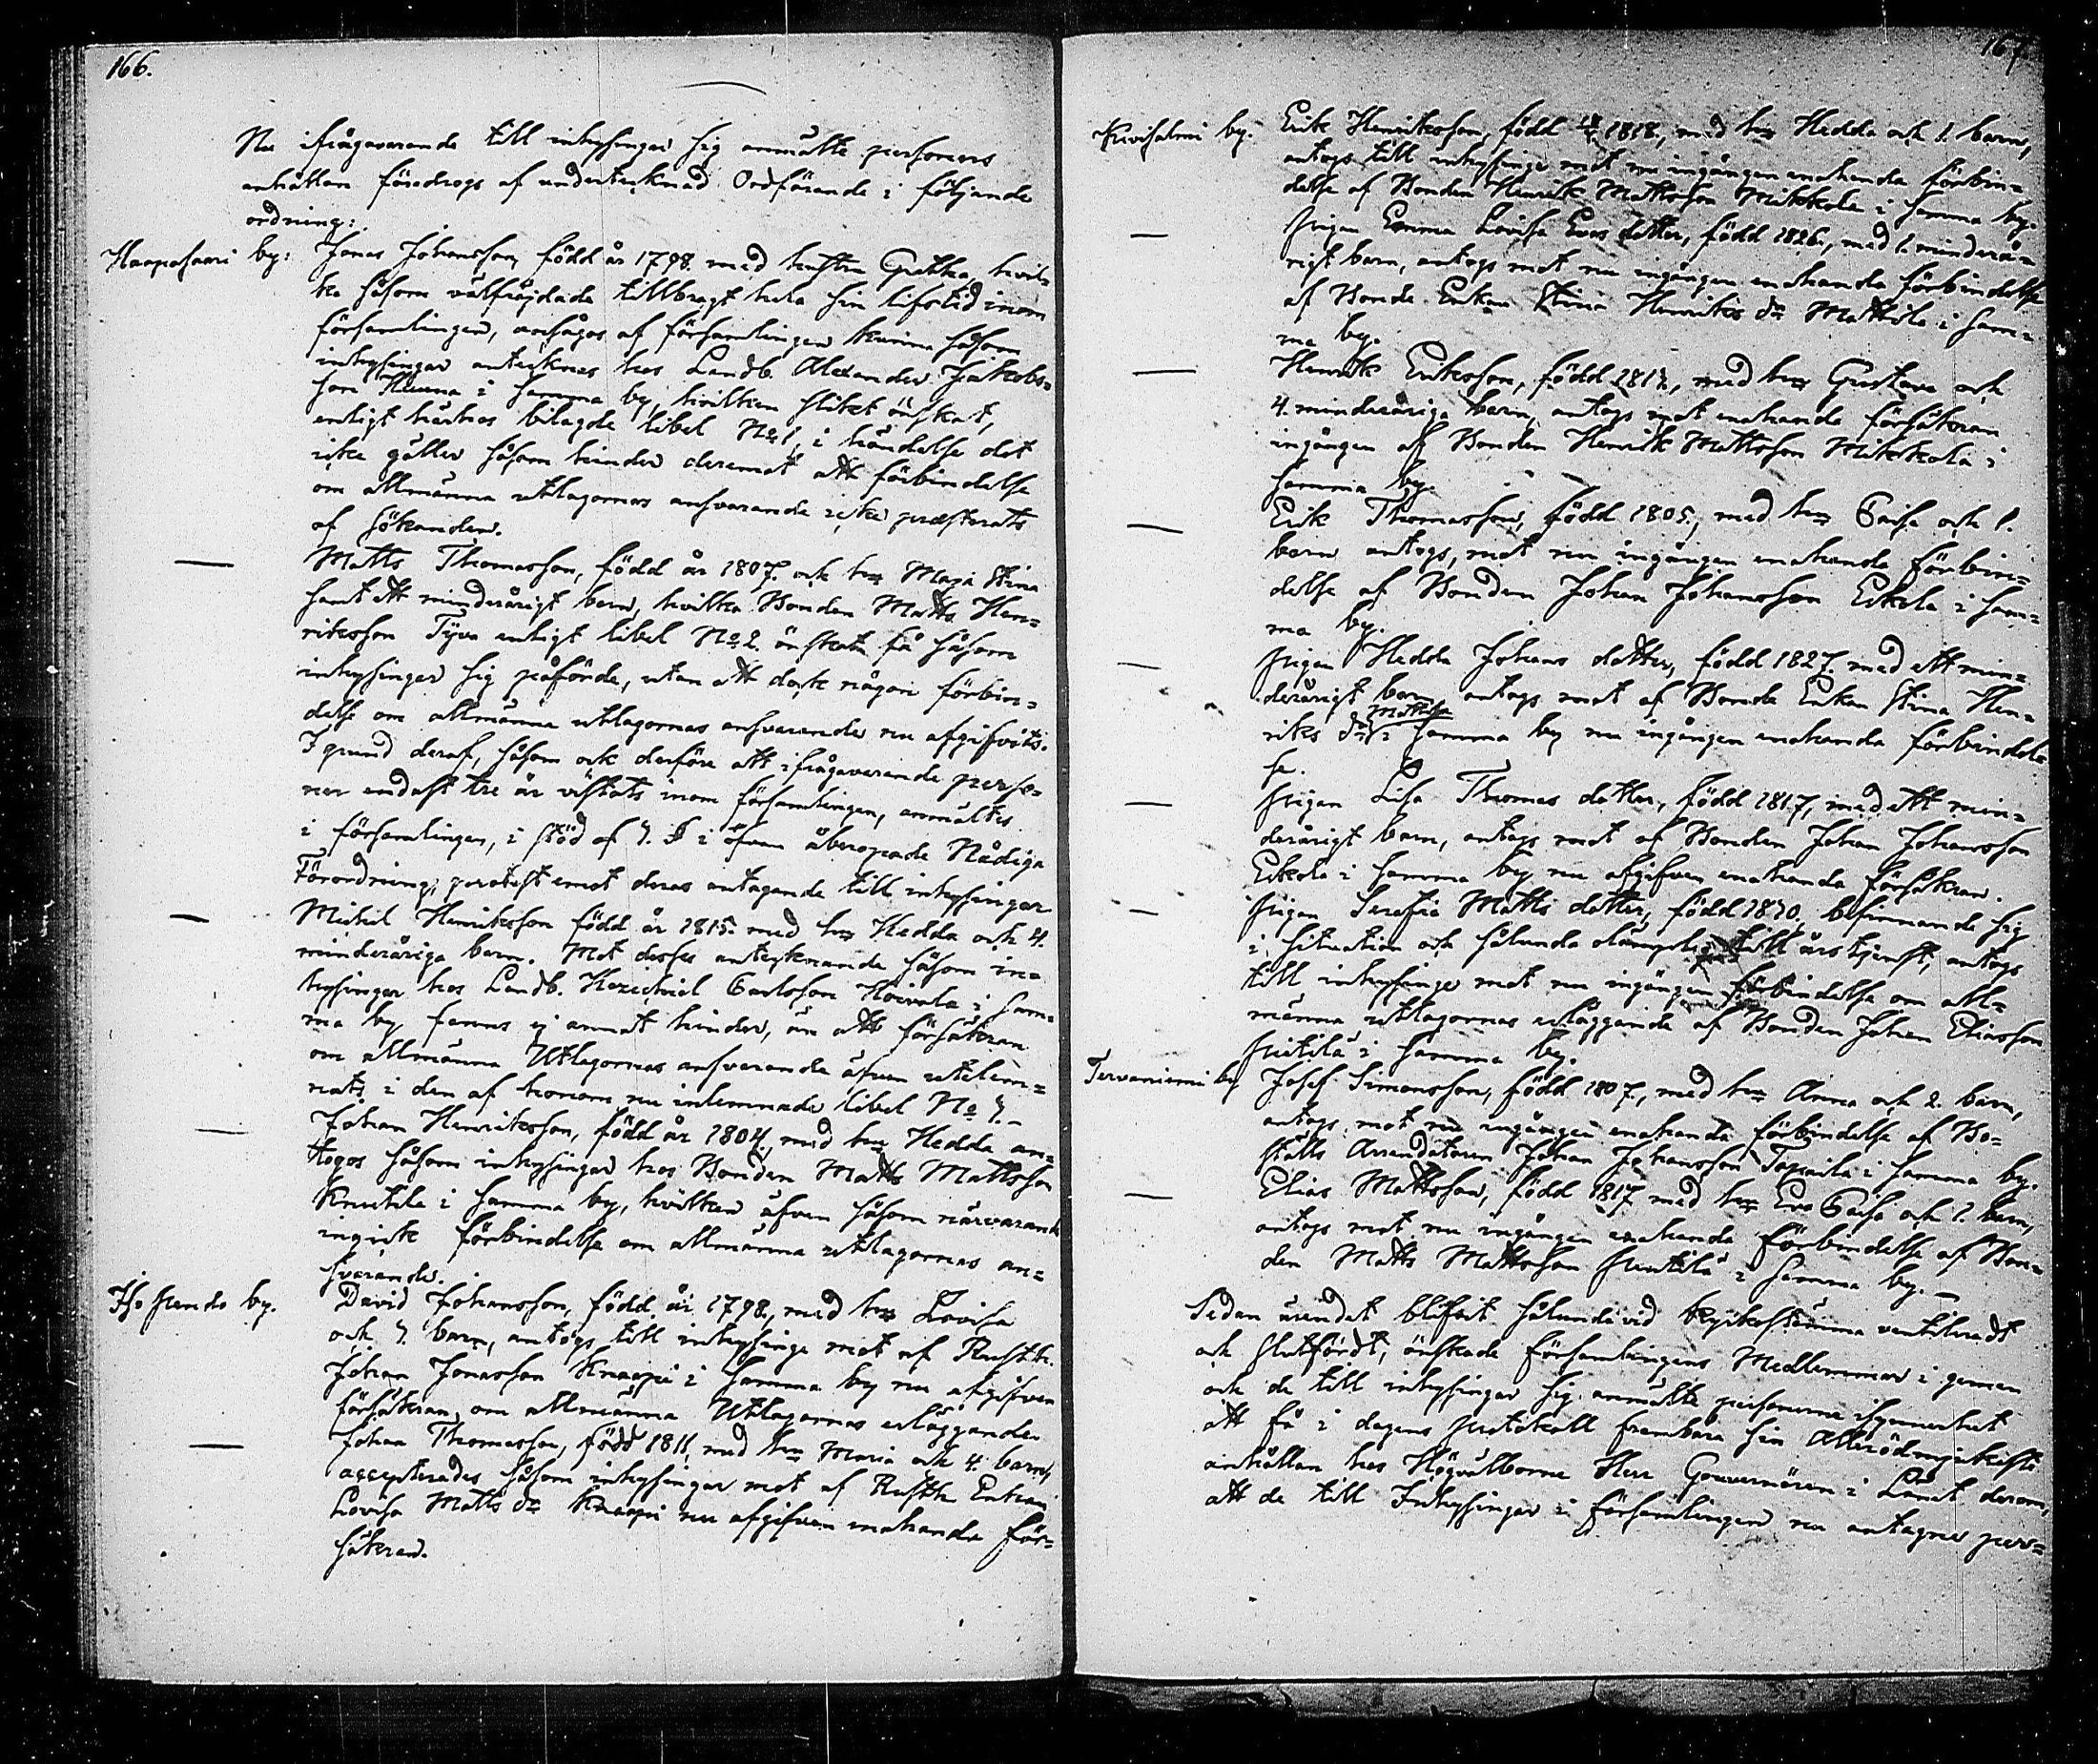 166.
Nu ifrågavarande till inhysingar sig anmälte personers
anhållan föredrogs af undertecknad Ordförande i följande
ordning:
Haapasaari by: Jonas Johansson, född år 1798. med hustru Gretha, hvil-
ka såsom välfrejdade tillbragt hela sin lifstid inom
församlingen, ansågos af församlingen kunna såsom
inhysingar antecknas hos Landb. Alexander Jakobs-
son i samma by, hvilken slikt önskat,
enligt härhos bilagde libel No 1, i händelse det
icke gäller såsom hinder deremot att förbindelse
om allmänna utlagornas ansvarande icke presterats
af sökanden.
— Matts Thomasson, född år 1807. och hu Maja Stina
samt ett minderårigt barn, hvilka Bonden Matts Hen-
riksson Tyvo enligt libel No 2. önskat få såsom
inhysingar sig påförde, utan att dock någon förbin-
delse om allmänna utlagornas ansvarande nu afgifvits.
I grund deraf, såsom ock derföre att ifrågavarande perso-
ner endast tre år vistats inom församlingen, anmältes
i församlingen, i stöd af 7. § i ofvan åberopade Nådiga
Förordning, protest emot deras antagande till inhysingar
— Michel Henriksson född år 1815. med hu Hedda och 4.
minderåriga barn. Mot desses antecknande såsom in-
hysingar hos Landb. Hezechiel Carlsson i sam-
ma by fanns ej annat hinder, än att försäkran
om allmänna Utlagornas ansvarande äfven utelem-
nats i den af honom nu inlemnade libel No 3.-
— Johan Henriksson, född år 1804, med hu Hedda an-
togos såsom inhysingar hos Bonden Matts Mattsson
Knutila i samma by, hvilken äfven såsom närvarande
ingick förbindelse om allmänna utlagornas an-
svarande.
by. David Johansson, född år 1798., med hu Lovisa
och 3. barn, antogs till inhysinge mot af Rusth.
Johan Jonasson Knaapi i samma by nu afgifven
försäkran om allmänna Utlagornas erläggande
— Johan Thomasson, född 1811, med hu Maria och 4. barn,
accepterades såsom inhysingar mot af Rusth. Enkan
Lovisa Matts dr Knaapi nu afgifven enahanda för-
säkran.
167
Kivisalmi by. Erik Henriksson, född 1818., med hu Hedda och 1. barn,
antogs till inhysinge mot nu ingången enahanda förbin-
delse af Bonden Henrik Mattsson Mikkola i samma by.
— Pigan Emma Lovisa Evas dotter, född 1826., med 1. minderå-
rigt barn, antogs mot nu ingången enahanda förbindelse
af Bonde Enkan Stina Henriks dr Mattila i sam-
ma by.
— Henrik Eriksson, född 1813., med hu Gustava och
4. minderåriga barn, antogs mot enahanda försäkran
ingången af Bonden Henrik Mattsson Mikkola i
samma by.
— Erik Thomasson, född 1805., med hu Caisa och 1.
barn antogs, mot nu ingången enahanda förbin-
delse af Bonden Johan Johansson Eskola i sam-
ma by.
— Pigan Hedda Johans dotter, född 1827. med ett min-
derårigt barn, antogs mot af Bonde Enkan Stina Hen-
riks dr Mattila i samma by nu ingången enahanda förbindel-
se.
— Pigan Lisa Thomas dotter, född 1817, med ett min-
derårigt barn, antogs mot af Bonden Johan Johansson
Eskola i samma by nu afgifven enahanda försäkran.
— Pigan Serafia Matts dotter, född 1830. befinnande sig
i situation och sålunda olämplig till års tjenst, antogs
till inhysinge mot nu ingången förbindelse om all-
männa utlagornas erläggande af Bonden Johan Eliasson
Pietilä i samma by.
Tervaniemi by Josef Simonsson, född 1807, med hu Anna och 2. barn,
antogs mot nu ingången enahanda förbindelse af Bo-
ställs Arrendatoren Johan Johansson Tapaila i samma by.
— Elias Mattsson, född 1817 med hu Eva Caisa och 1. barn,
antogs mot nu ingången enahanda förbindelse af Bon-
den Matts Mattsson Pentilä i samma by. —
Sedan ärendet blifvit sålunda vid Kyrkostämma ventileradt
och slutfördt, önskade församlingens Medlemmar i gemen
och de till inhysingar sig anmälte personerna isynnerhet
att få i dagens protokoll frambära sin Allerödmjukaste
anhållan hos Högvälborne Herr Gouvernören i Länet derom,
att de till Inhysingar i församlingen nu antagne per-